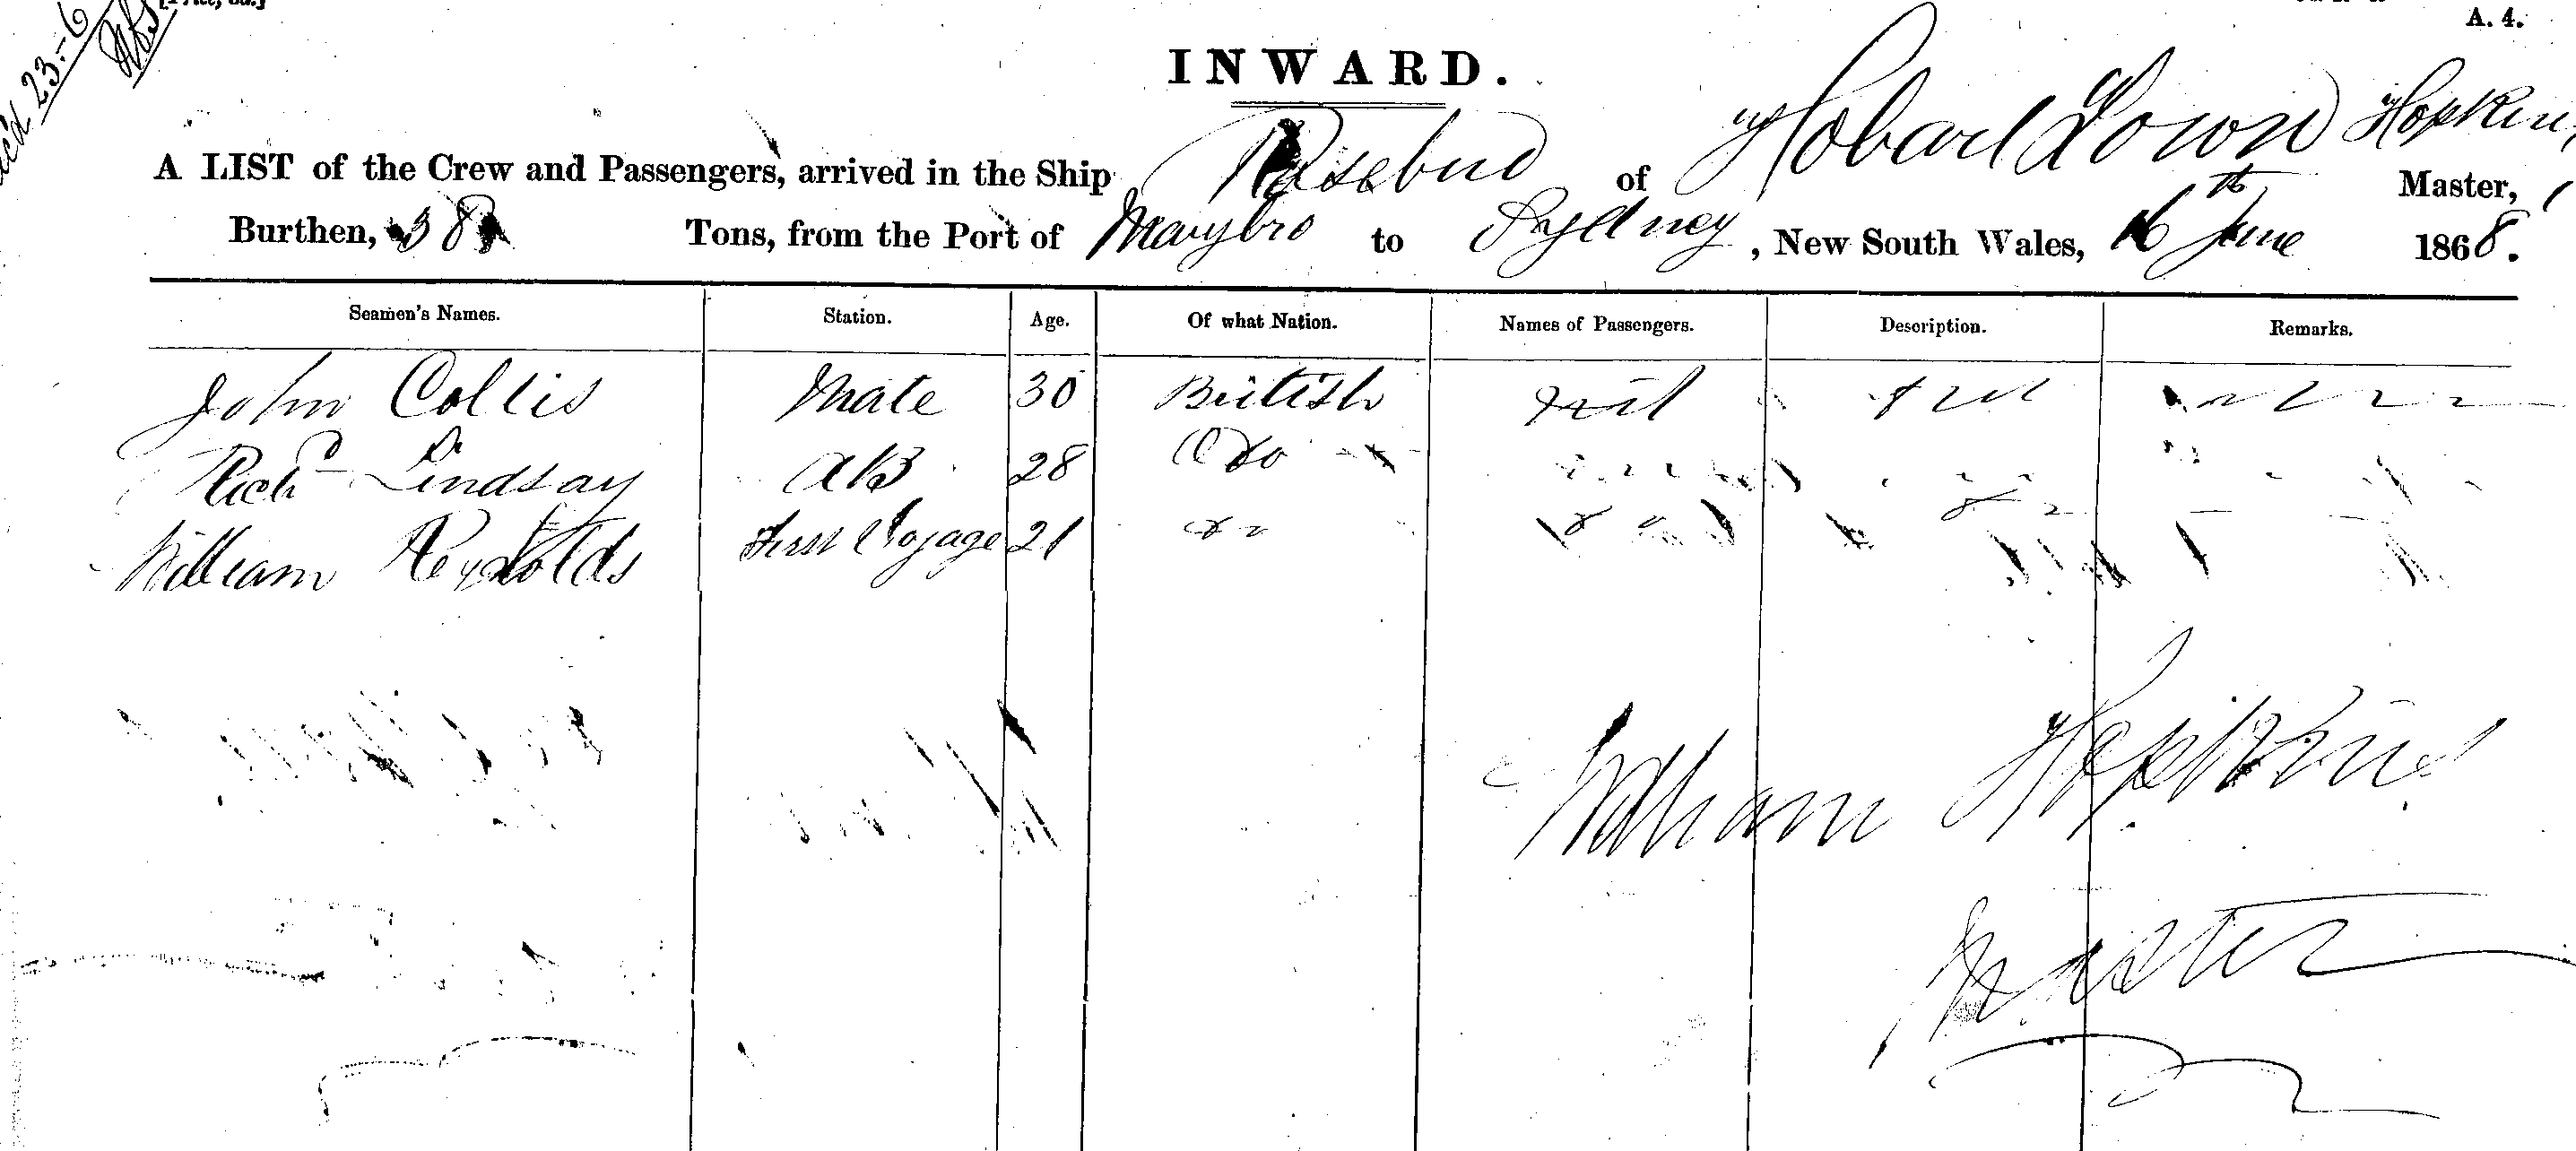 A. 4.
INWARD.
A LIST of the Crew and Passengers, arrived in the Ship Rosebud of Hobart Town Hopkins Master,
Burthen, 38 Tons, from the Port of Marybro to Sydney, New South Wales, 16th June 1868.
Seamen's Names. Station. Age. Of what Nation. Names of Passengers. Description. Remarks.
John Collis Mate 30 British nil
Richd Lindsay AB 28 Do
William Reynolds First Voyage 21 do
William Hopkins
Master